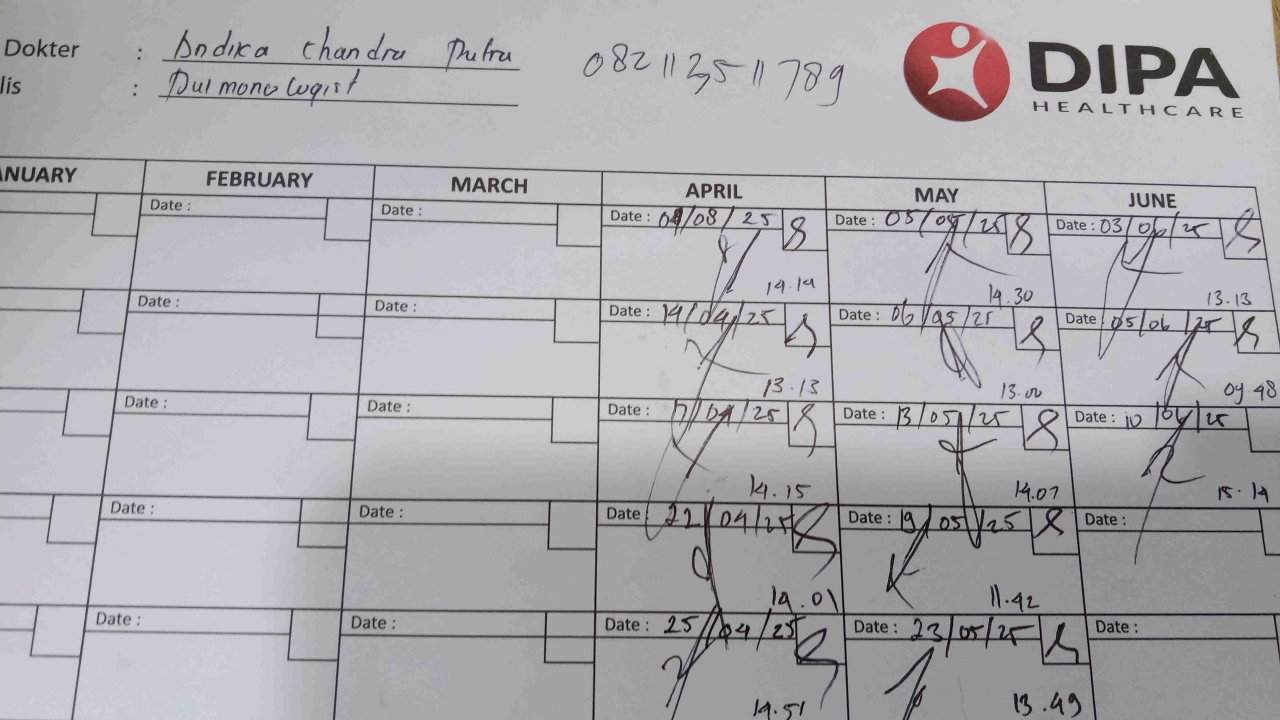 Dokter : Andika Chandra Putra 082112511789
lis : Pulmonologist
DIPA
HEALTHCARE
NUARY FEBRUARY MARCH APRIL MAY JUNE
Date : Date : Date : 08/25 Date : 05/05/25 Date : 03/06/25
14.19 14.30 13.13
Date : Date : Date : 14/04/25 Date : 06/05/25 Date : 05/06/25
13.13 13.00 09.48
Date : Date : Date : 17/04/25 Date : 13/05/25 Date : 10/06/25
14.15 14.07 15.19
Date : Date : Date : 22/04/25 Date : 19/05/25 Date :
14.01 11.42
Date : Date : Date : 25/04/25 Date : 23/05/25 Date :
14.51 13.49